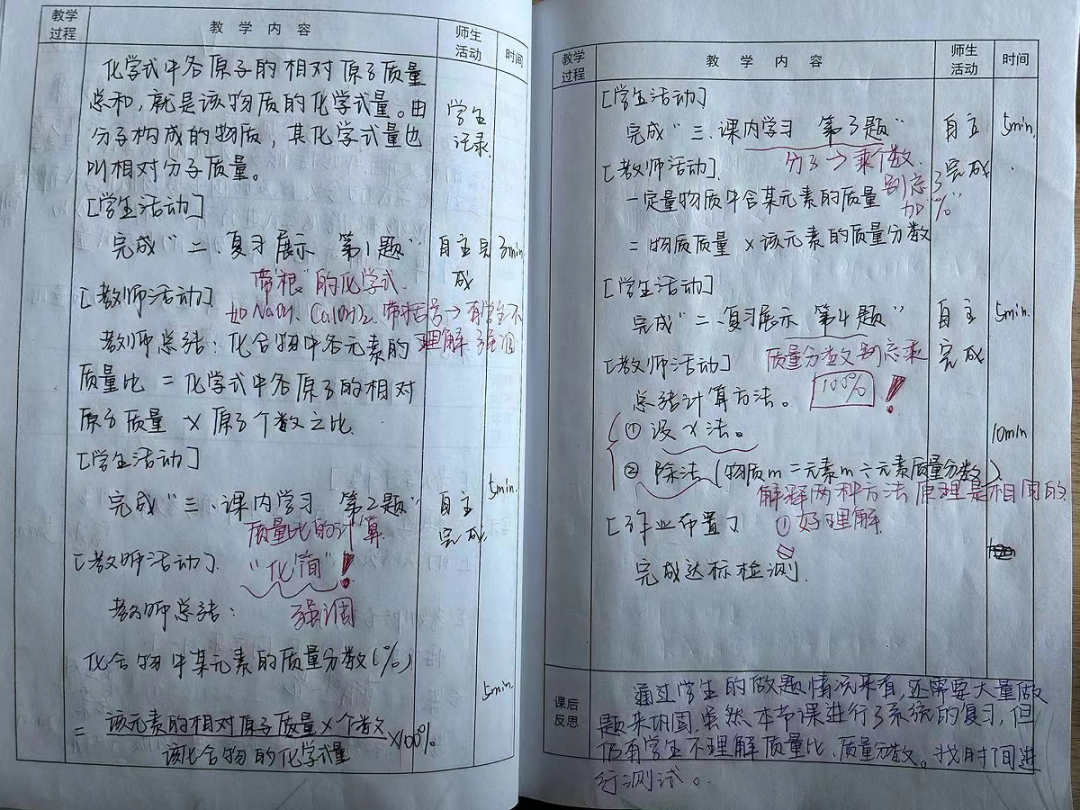 教学过程 教学内容 师生活动 时间
化学式中各原子的相对原子质量
总和，就是该物质的化学式量。由
分子构成的物质，其化学式量也
叫相对分子质量。
学生
记录
[学生活动]
完成“二、复习展示 第1题” 自主完成 3min
带“根”的化学式
[教师活动] 如NaOH、Ca(OH)2 带括号→有学生不
教师总结：化合物中各元素的 理解 强调
质量比 = 化学式中各原子的相对
原子质量 × 原子个数之比
[学生活动]
5min.
完成“三、课内学习 第2题” 自主
质量比的计算 完成
[教师活动]. “化简”！
教师总结： 强调
化合物中某元素的质量分数(%)
5min.
= 该元素的相对原子质量×个数
该化合物的化学式量
×100%.
教学过程 教学内容 师生活动 时间
[学生活动]
完成“三、课内学习 第3题” 自主 5min.
分子→乘个数.
[教师活动]. 完成
一定量物质中含某元素的质量 别忘了
加“%”
= 物质质量 × 该元素的质量分数
[学生活动]
完成“二、复习展示 第4题” 自主 5min.
[教师活动] 质量分数又别忘录 完成
总结计算方法。 100% ！
① 设x法。 10min
② 除法 (物质m = 元素m ÷ 元素质量分数)
解释两种方法 原理是相同的
[作业布置] ①好理解
完成达标检测.
课后反思
通过学生的做题情况来看，还需要大量做
题来巩固，虽然本节课进行了系统的复习，但
仍有学生不理解质量比、质量分数。找时间进
行测试。